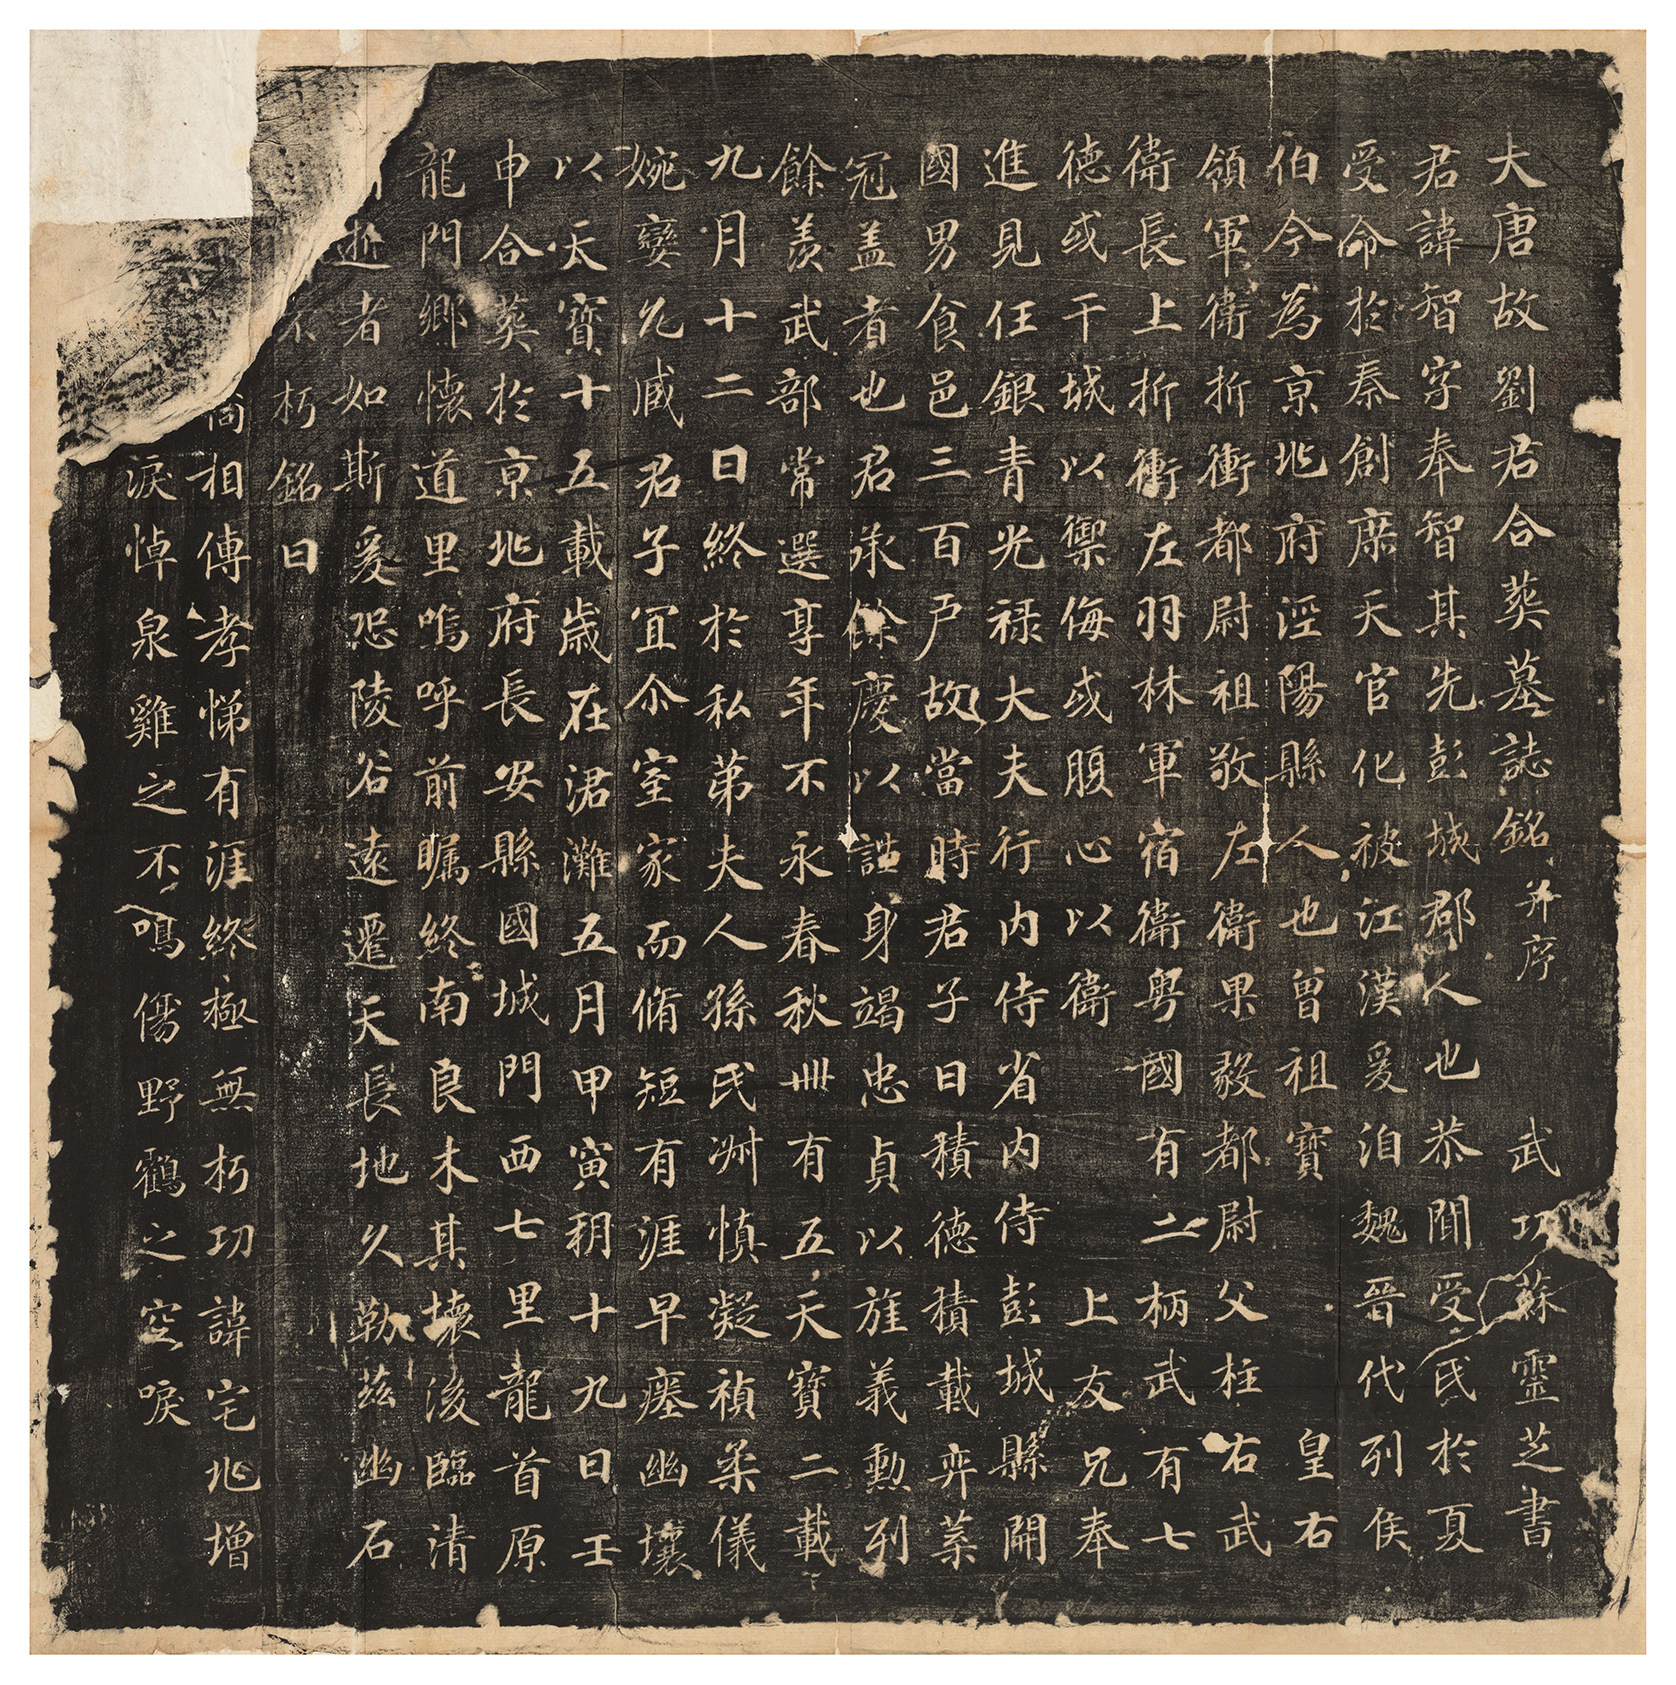 大唐故劉君合葬墓誌銘并序 武功蘇靈芝書
君諱智字奉智其先彭城郡人也恭聞受氏於夏
受命於秦創庶天官化被江漢爰洎魏晉代列侯
伯今為京兆府涇陽縣人也曾祖寶 皇右
領軍衛折衝都尉祖敬左衛果毅都尉父柱右武
衛長上折衝左羽林軍宿衛粵國有二柄武有七
德或干城以禦侮或腹心以衛 上友兄奉
進見任銀青光祿大夫行內侍省內侍彭城縣開
國男食邑三百戶故當時君子曰積德積載弈葉
冠蓋者也君承餘慶以誕身竭忠貞以旌義勲列
餘羨武部常選享年不永春秋卌有五天寶二載
九月十二日終於私第夫人孫氏洲慎凝禎柔儀
婉孌允臧君子宜尒室家而脩短有涯早瘞幽壤
以天寶十五載歲在涒灘五月甲寅朔十九日壬
申合葬於京兆府長安縣國城門西七里龍首原
龍門鄉懷道里嗚呼前矚終南良木其壞後臨清
逝者如斯爰恐陵谷遠遷天長地久勒茲幽石
不朽銘曰
相傳孝悌有涯終極無朽功諱宅兆增
淚悼泉雞之不鳴傷野鶴之空唳